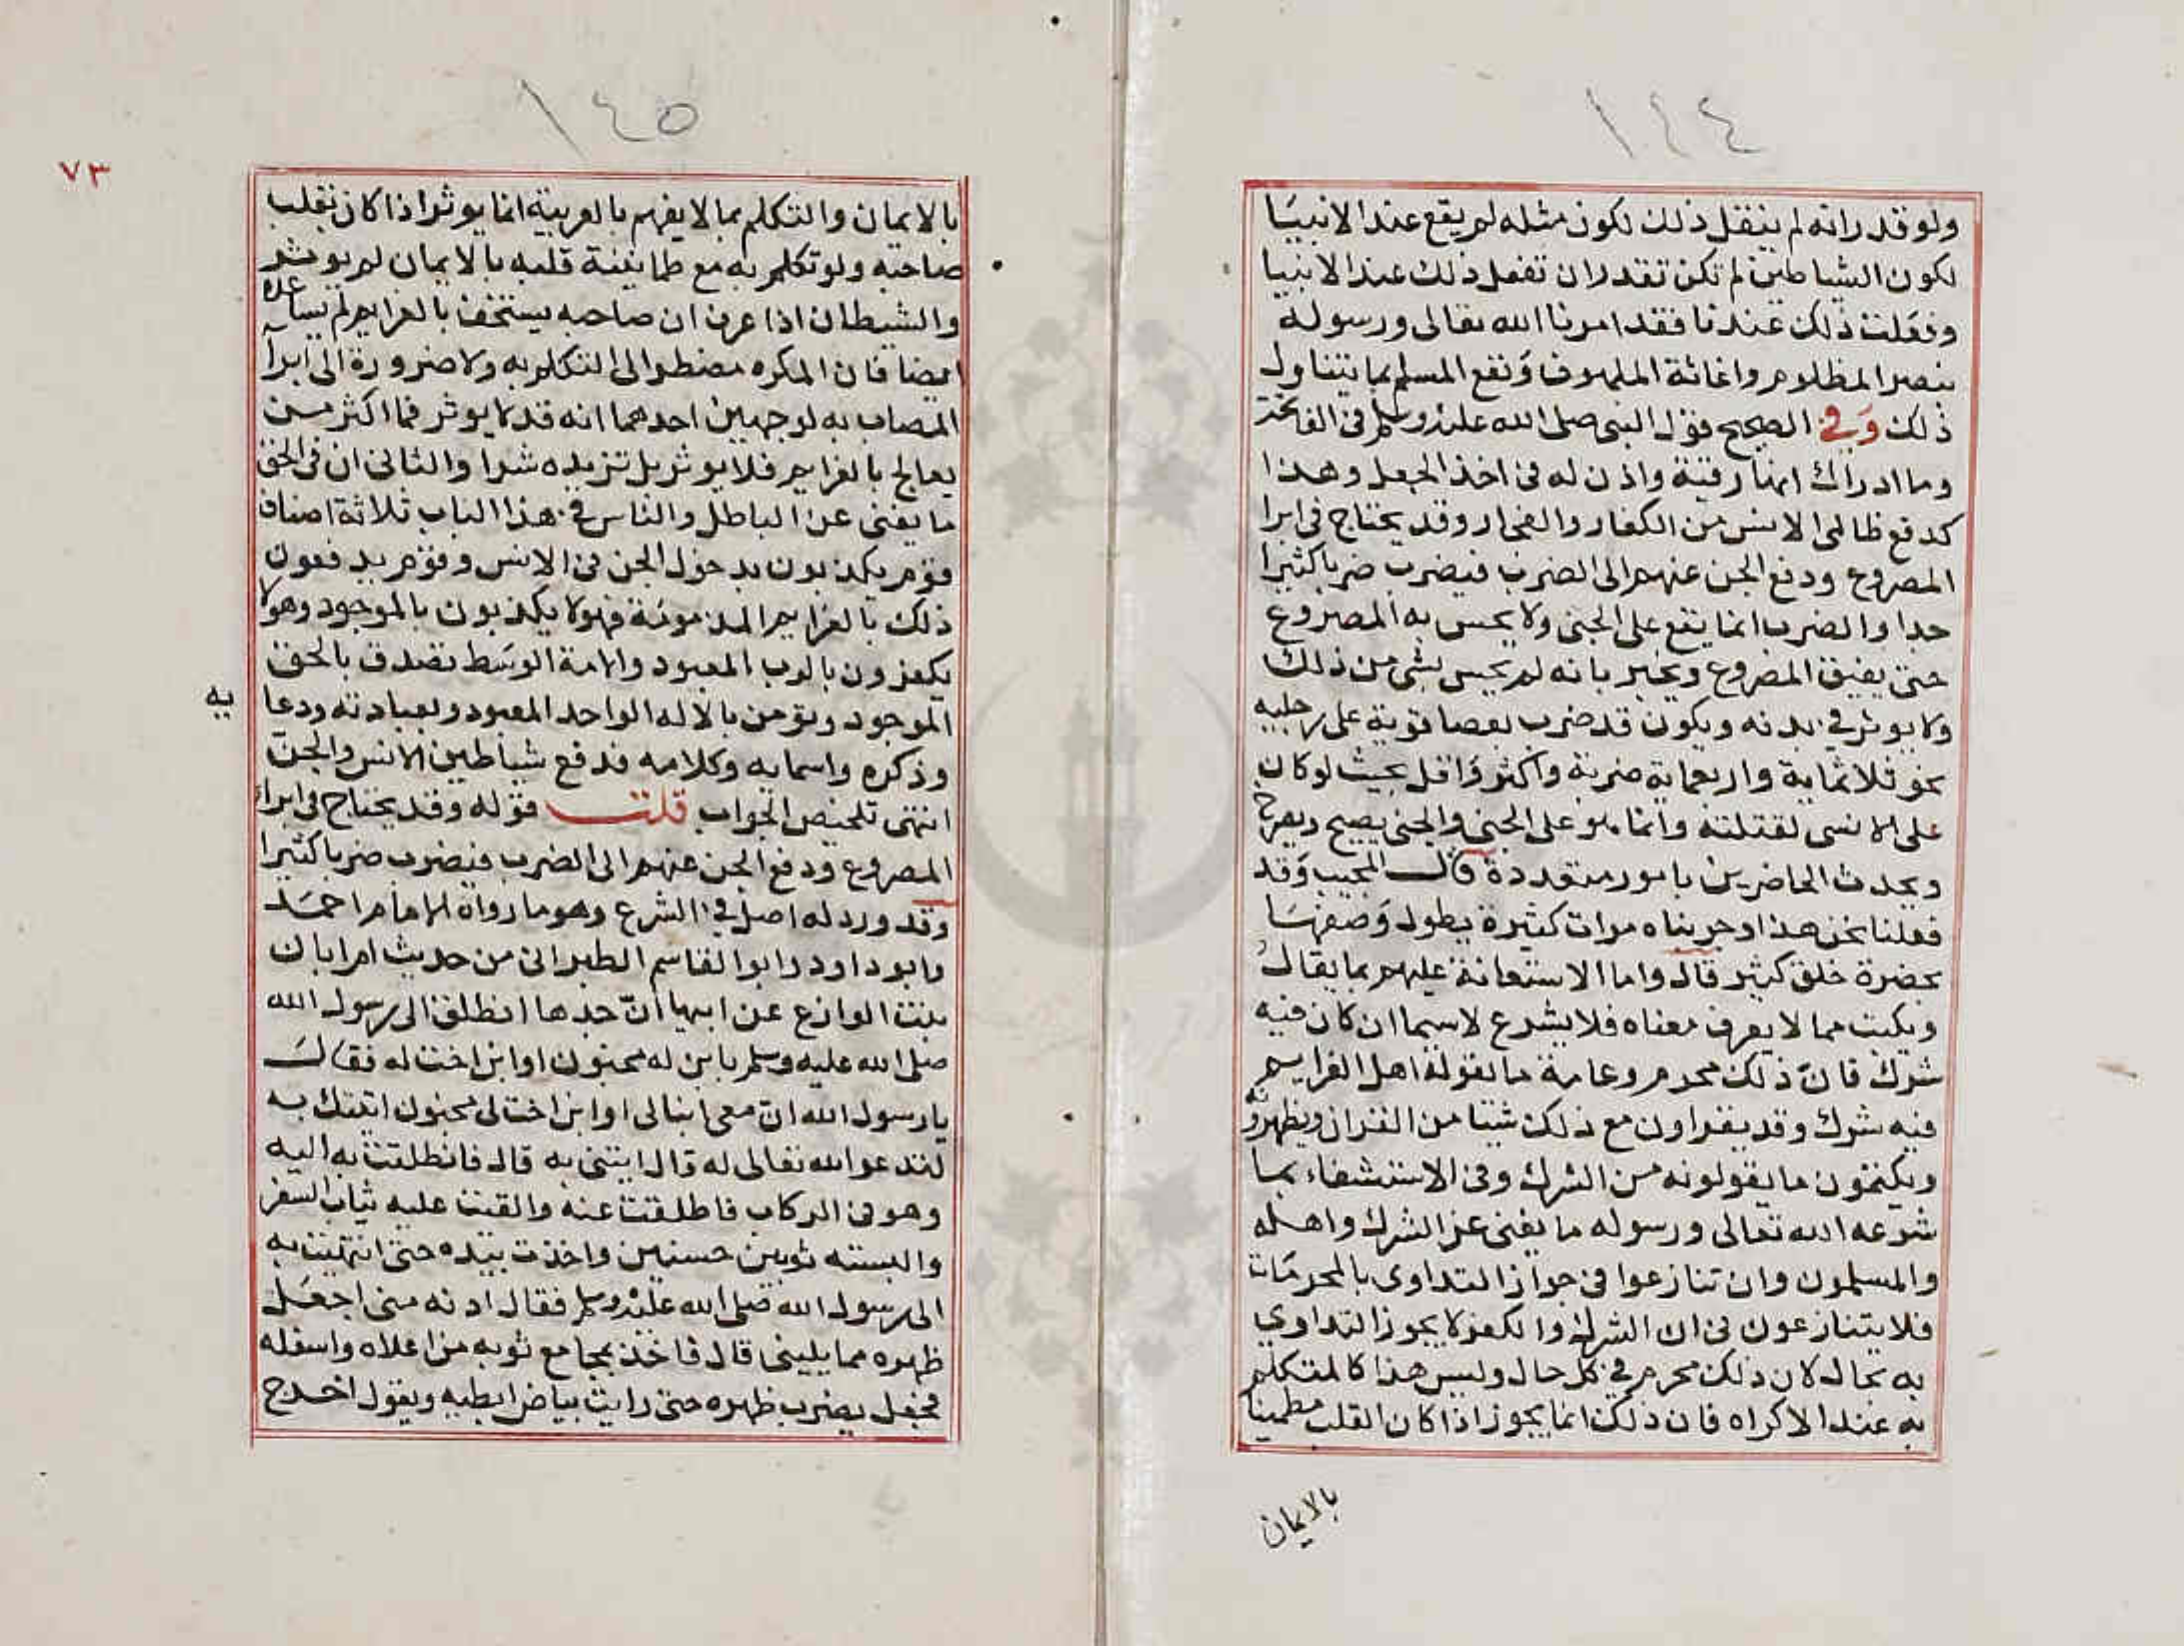 ١٤٤
ولو قدر انه لم ينقل ذلك لكون مثله لم يقع عند الانبيا
لكون الشياطين لم تكن تقدر ان تفعل ذلك عند الانبيا
وفعلت ذلك عندنا فقد امرنا الله تعالى ورسوله
بنصر المظلوم واغاثة الملهوف ونفع المسلم بما يتناول
ذلك وفي الصحيح قول النبي صلى الله عليه وسلم في الفاتحة
وما ادراك انها رقية واذن له في اخذ الجعل وهذا
كدفع ظالمي الانس من الكفار والفجار وقد يحتاج في ابرا
المصروع ودفع الجن عنهم الى الضرب فيضرب ضربا كثيرا
جدا والضرب انما يقع على الجني ولا يحس به المصروع
حتى يفيق المصروع ويخبر بانه لم يحس بشي من ذلك
ولا يوثر في بدنه ويكون قد ضرب بعصا قوية على رجليه
نحو ثلاثماية واربعماية ضربة واكثر واقل بحيث لو كان
على الانسي لقتلته وانما هو على الجني والجني يصيح ويصرخ
ويحدث الحاضرين بامور متعددة قال المجيب وقد
فعلنا نحن هذا وجربناه مرات كثيرة يطول وصفها
بحضرة خلق كثير قال واما الاستعانة عليهم بما يقال
ويكتب مما لا يعرف معناه فلا يشرع لاسيما ان كان فيه
شرك فان ذلك محرم وعامة ما يقوله اهل العزايم
فيه شرك وقد يقراون مع ذلك شيئا من القران ويظهرونه
ويكتمون ما يقولونه من الشرك وفي الاستشفاء بما
شرعه الله تعالى ورسوله ما يغني عن الشرك واهله
والمسلمون وان تنازعوا في جواز التداوي بالمحرمات
فلا يتنازعون في ان الشرك والكفر لا يجوز التداوي
به بحال لان ذلك محرم في كل حال وليس هذا كالمتكلم
به عند الاكراه فان ذلك انما يجوز اذا كان القلب مطمينا
بالايمان
١٤٥
٧٣
بالايمان والتكلم بما لا يفهم بالعربية انما يوثر اذا كان بقلب
صاحبه ولو تكلم به مع طمانينة قلبه بالايمان لم يوثر
والشيطان اذا عرف ان صاحبه يستخف بالعزايم لم يساعده
ايضا فان المكره مضطر الى التكلم به ولا ضرورة الى ابرآ
المصاب به لوجهين احدهما انه قد لا يوثر فما اكثر من
يعالج بالعزايم فلا يوثر بل تزيده شرا والثاني ان في الحق
ما يغني عن الباطل والناس في هذا الباب ثلاثة اصناف
قوم يكذبون بدخول الجن في الانس وقوم يدفعون
ذلك بالعزايم المذمومة فهولا يكذبون بالموجود وهولا
يكفرون بالرب المعبود والامة الوسط تصدق بالحق
الموجود وتؤمن بالاله الواحد المعبود وبعبادته ودعا
يه
وذكره واسمايه وكلامه فدفع شياطين الانس والجن
انتهى تلخيص الجواب قلت قوله وقد يحتاج في ابراء
المصروع ودفع الجن عنهم الى الضرب فيضرب ضربا كثيرا
وقد ورد له اصل في الشرع وهو ما رواه الامام احمد
وابو داود وابو القاسم الطبراني من حديث ام ابان
بنت الوازع عن ابيها ان جدها انطلق الى رسول الله
صلى الله عليه وسلم بابن له مجنون او ابن اخت له فقال
يا رسول الله ان معي ابنا لي او ابن اخت لي مجنون اتيتك به
لتدعو الله تعالى له قال ايتني به قال فانطلقت به اليه
وهو في الركاب فاطلقت عنه والقيت عليه ثياب السفر
والبسته ثوبين حسنين واخذت بيده حتى انتهيت به
الى رسول الله صلى الله عليه وسلم فقال ادنه مني اجعل
ظهره مما يليني قال فاخذ بمجامع ثوبه من اعلاه واسفله
فجعل يضرب ظهره حتى رايت بياض ابطيه ويقول اخرج